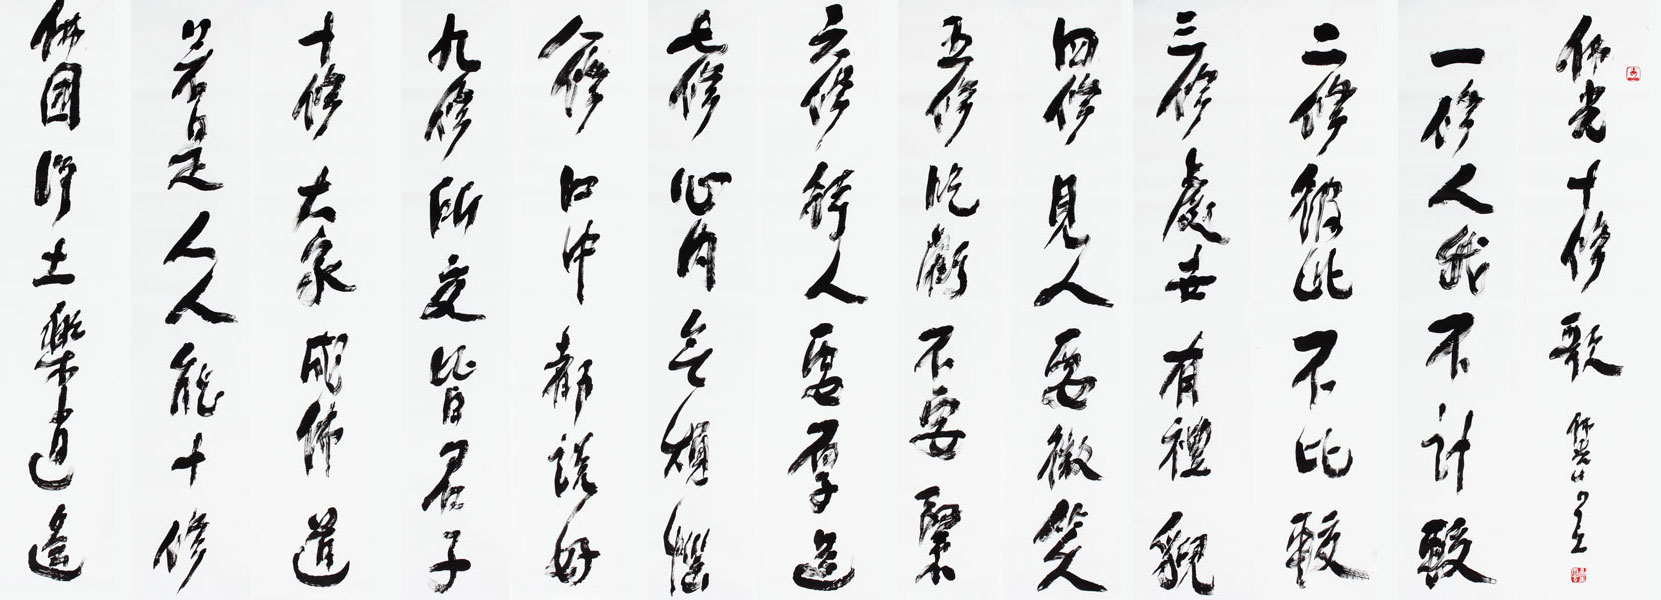 佛光十修歌
一修人我不計較
二修彼此不比較
三修處世有禮貌
四修見人要微笑
五修吃虧不要緊
六修待人要厚道
七修心內無煩惱
八修口中都說好
九修所交皆君子
十修大家成佛道
若是人人能十修
佛國淨土樂逍遙